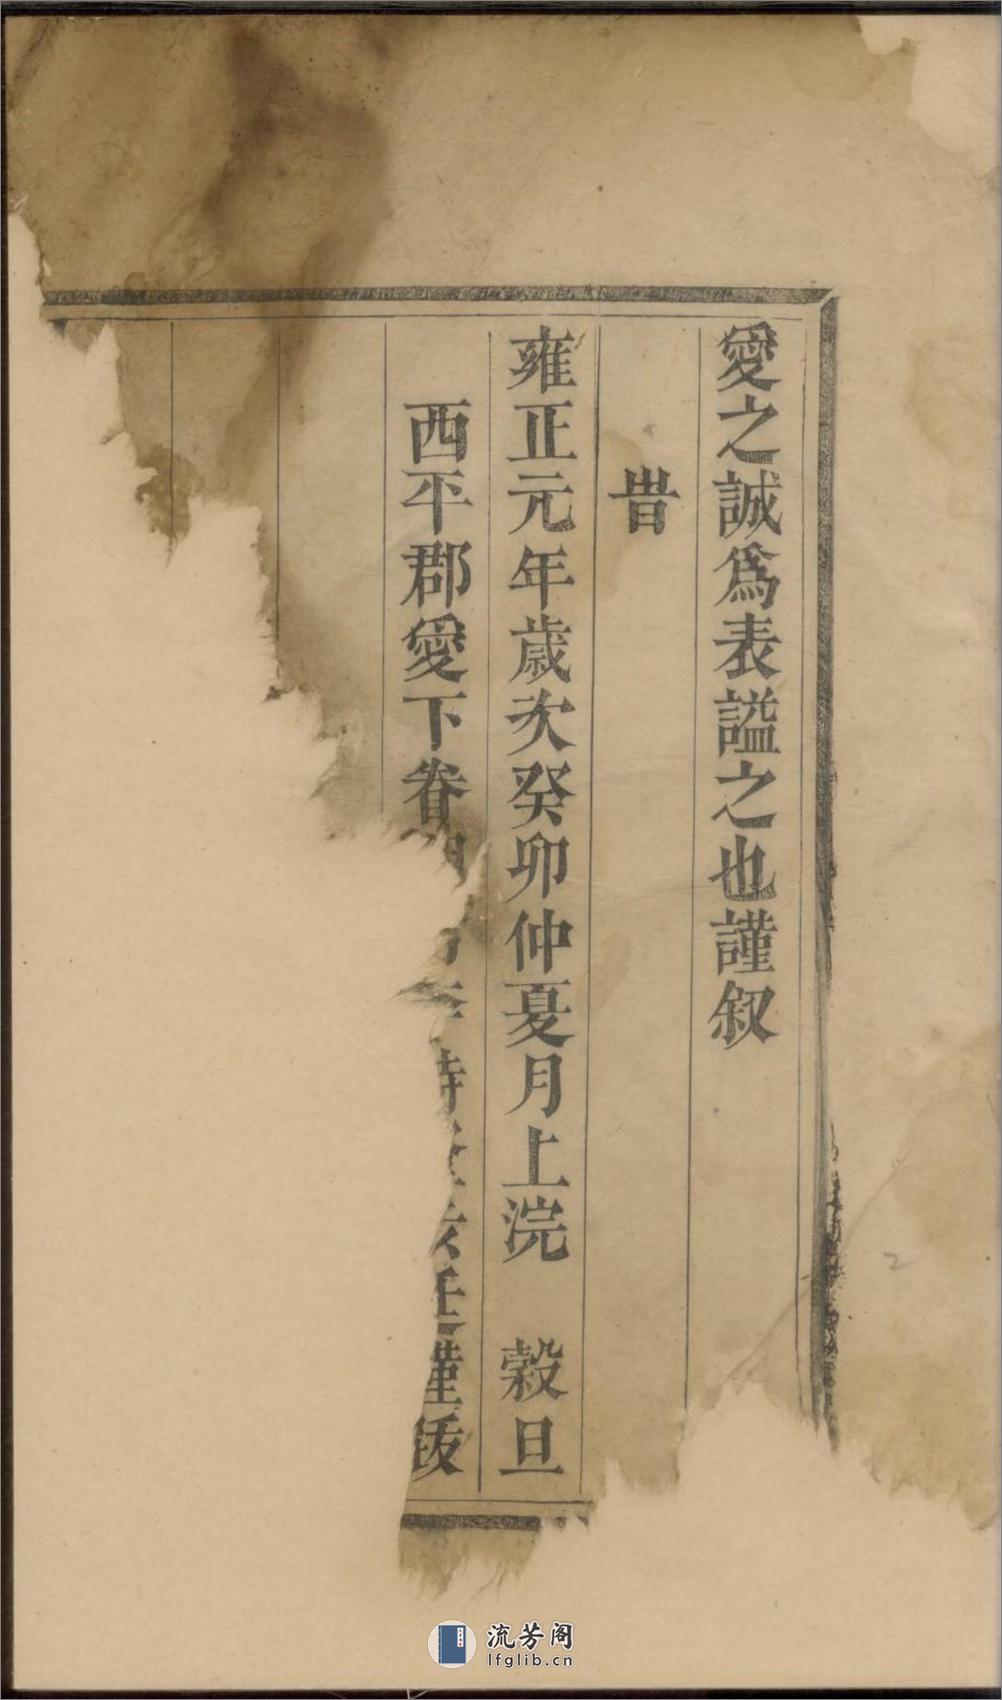 愛之誠為表謚之也謹叙
旹
雍正元年歲次癸卯仲夏月上浣　穀旦
西平郡愛下眷
謹
流芳阁
lfglib.cn